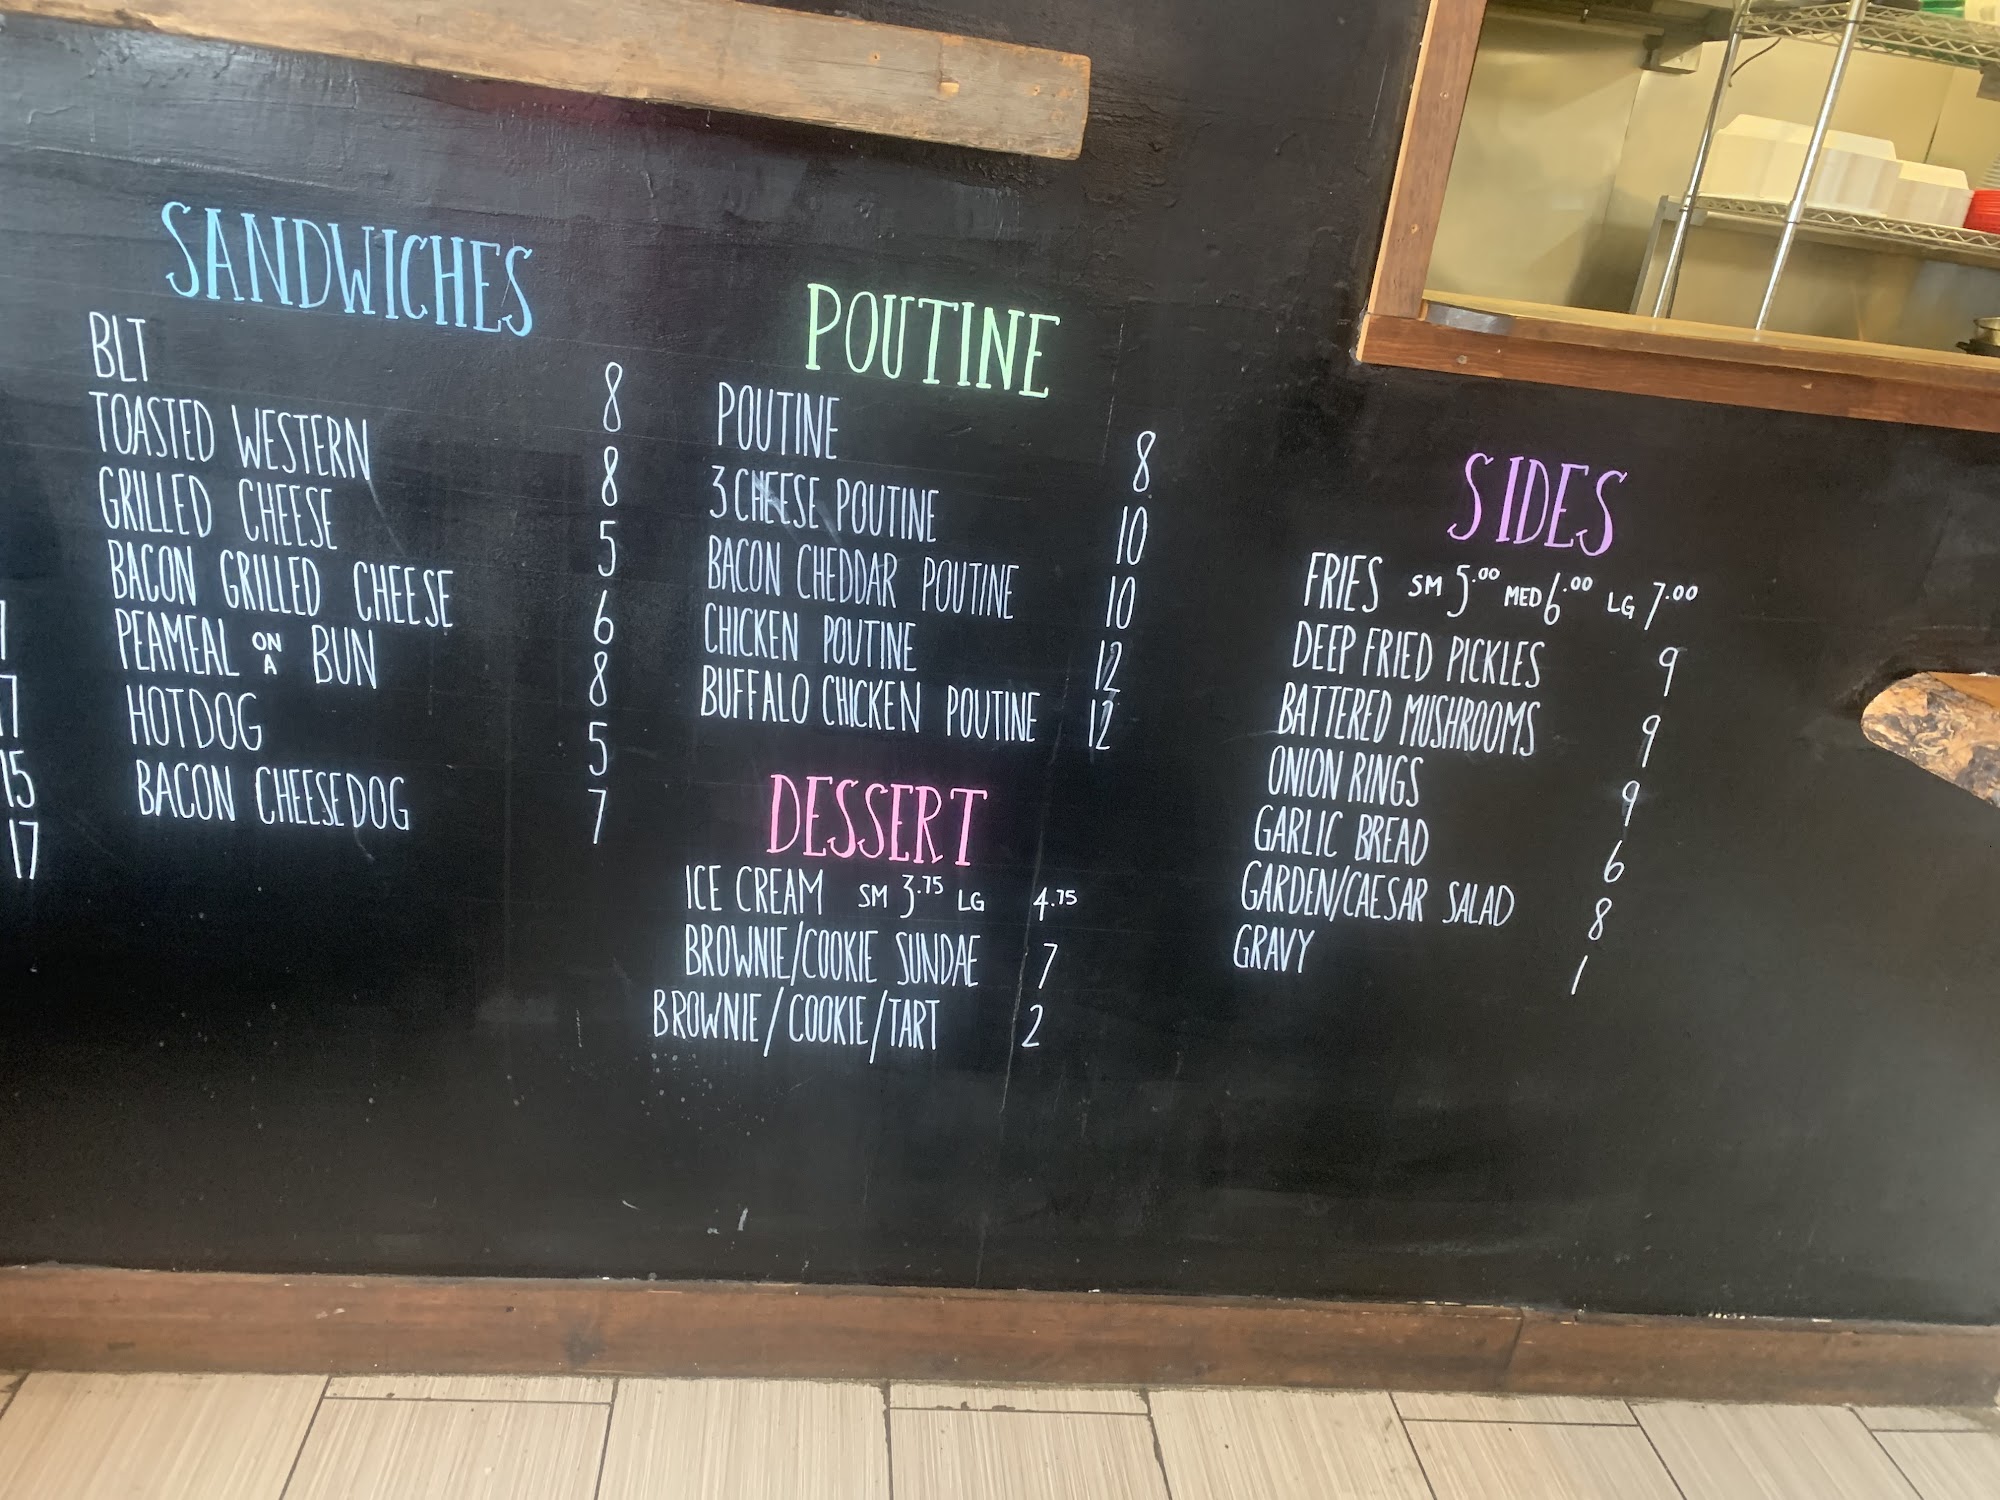 SANDWICHES
BLT 8
TOASTED WESTERN 8
GRILLED CHEESE 5
BACON GRILLED CHEESE 6
PEAMEAL ON A BUN 8
HOTDOG 5
BACON CHEESEDOG 7
7
15
17
POUTINE
POUTINE 8
3 CHEESE POUTINE 10
BACON CHEDDAR POUTINE 10
CHICKEN POUTINE 12
BUFFALO CHICKEN POUTINE 12
DESSERT
ICE CREAM SM 3.75 LG 4.75
BROWNIE/COOKIE SUNDAE 7
BROWNIE/COOKIE/TART 2
SIDES
FRIES SM 5.00 MED 6.00 LG 7.00
DEEP FRIED PICKLES 9
BATTERED MUSHROOMS 9
ONION RINGS 9
GARLIC BREAD 6
GARDEN/CAESAR SALAD 8
GRAVY 1